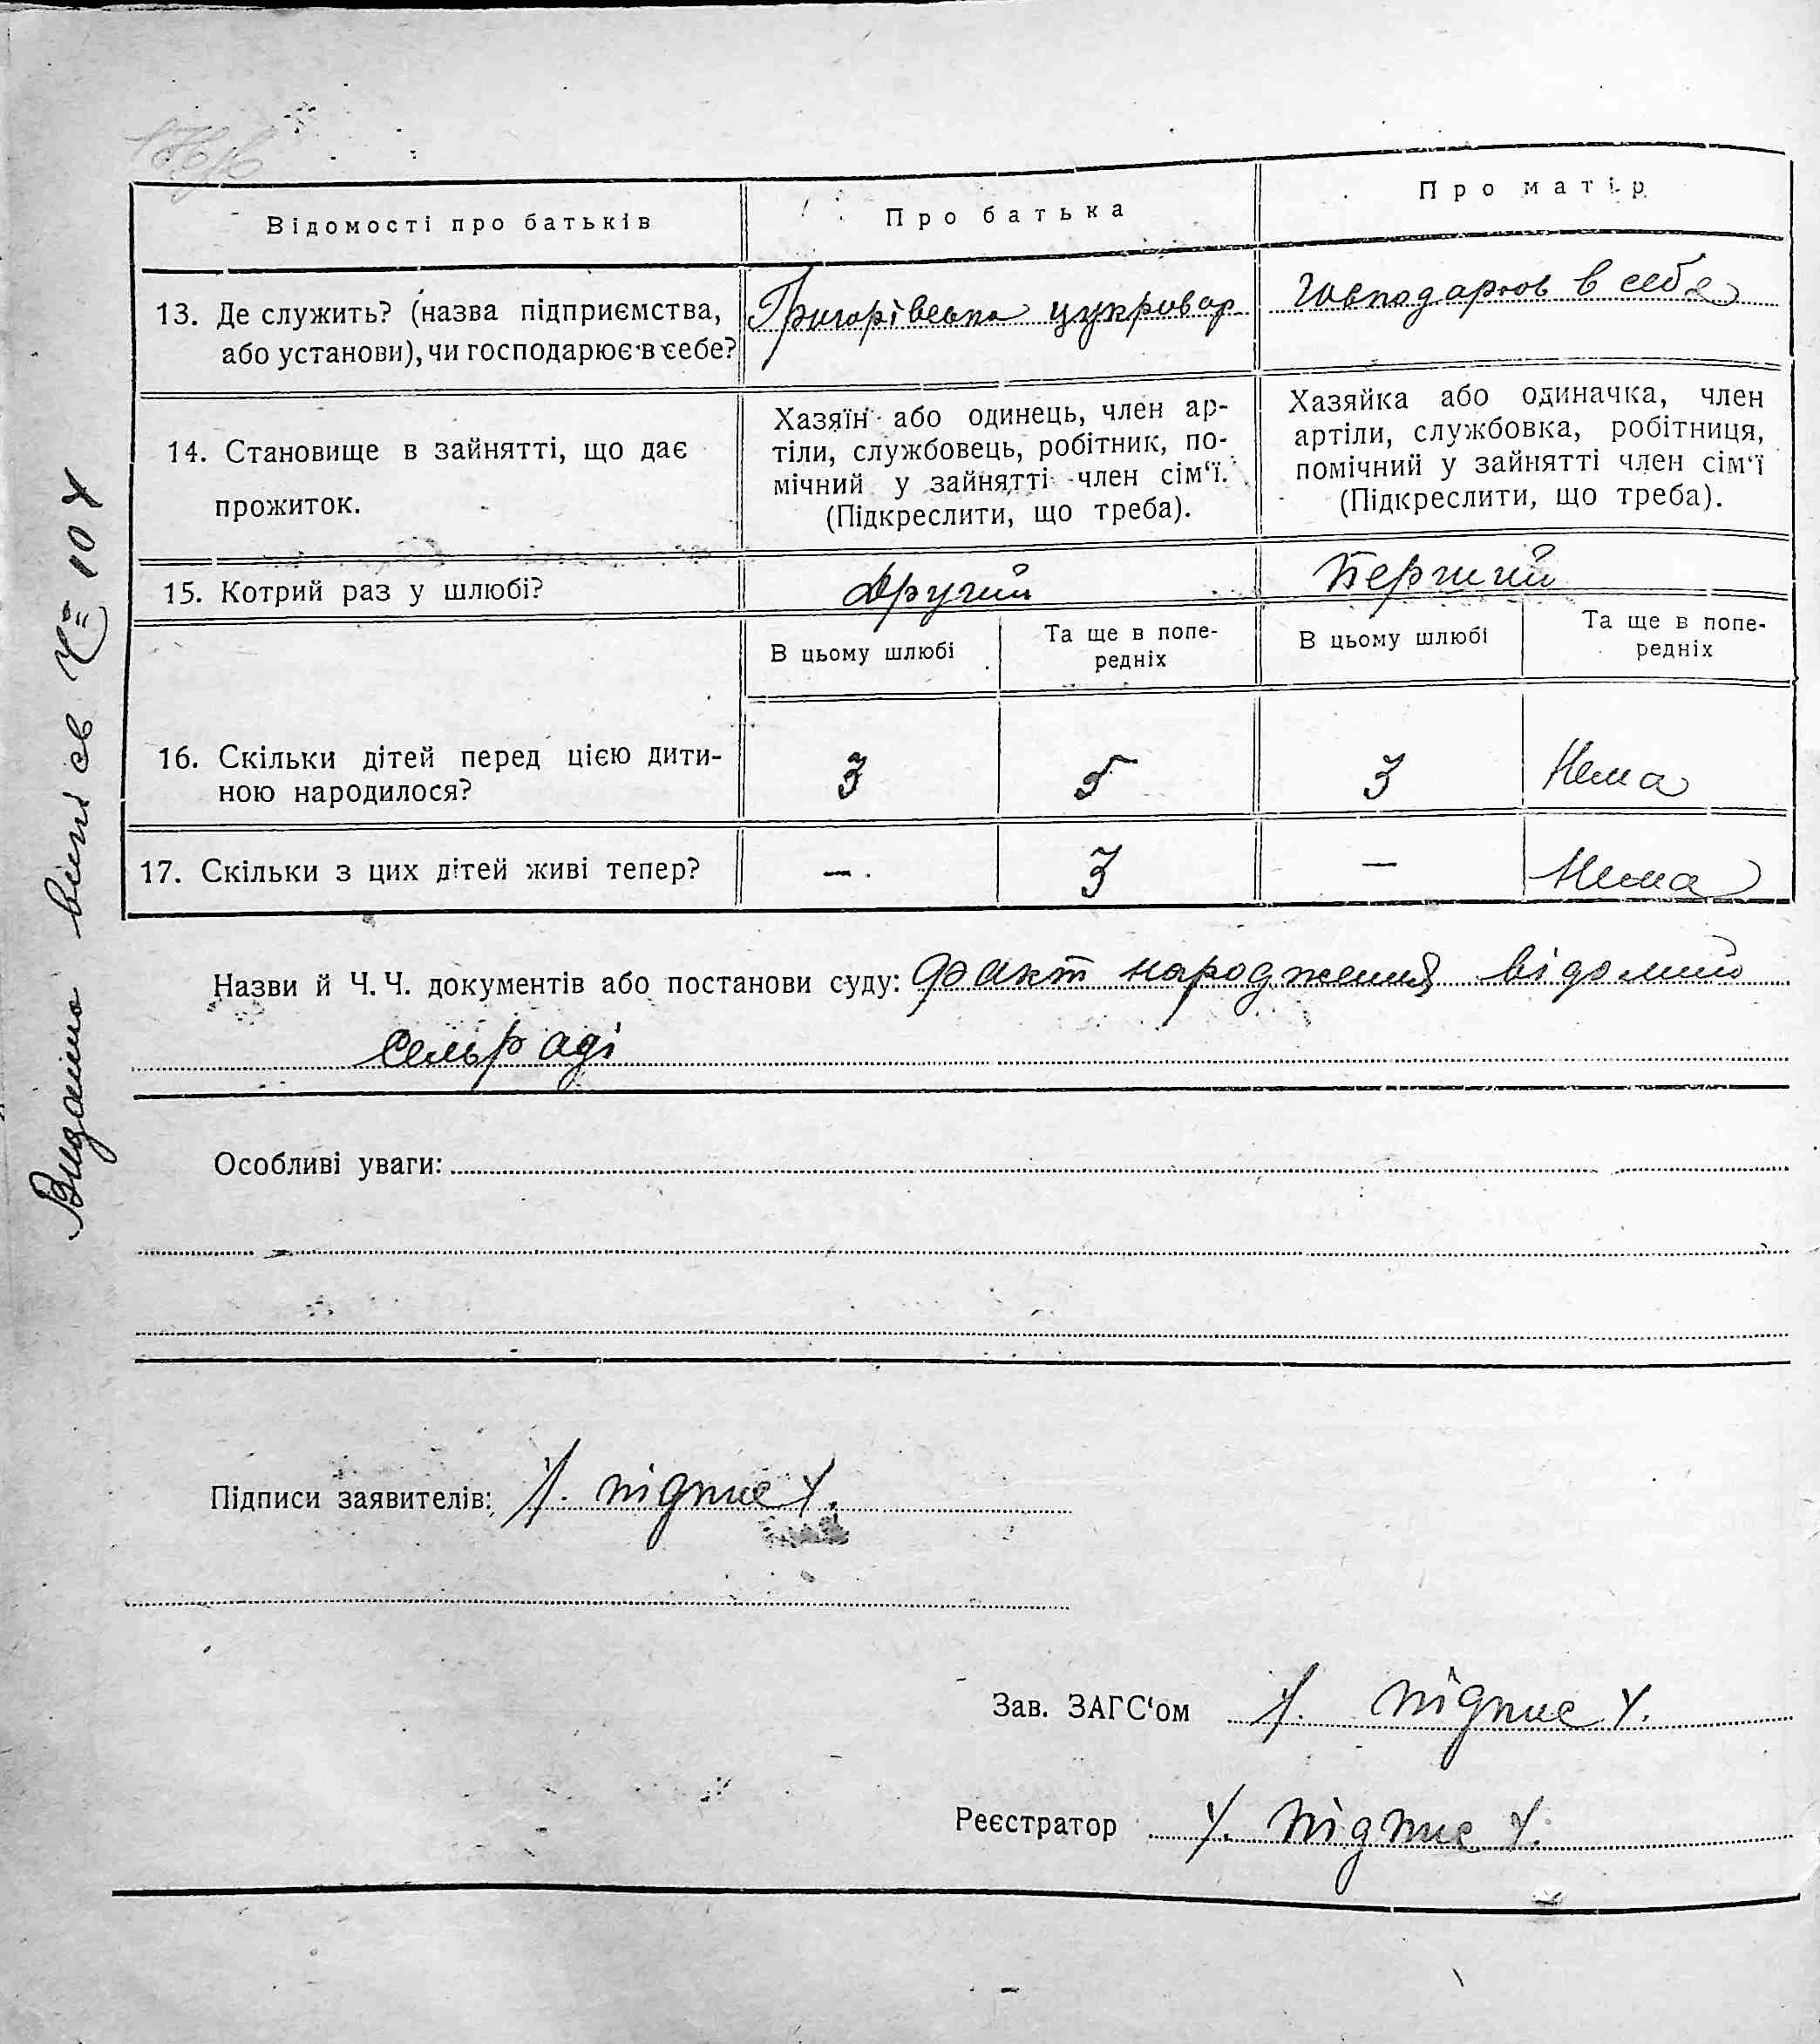 Відомості про батьків
Про батька
Про матір
13. Де служить? (назва підприємства,
або установи), чи господарює в себе?
Григорівська цукровар
Господарює в себе
14. Становище в зайнятті, що дає
прожиток.
Хазяїн або одинець, член ар-
тіли, службовець, робітник, по-
мічний у зайнятті член сім‘ї.
(Підкреслити, що треба).
Хазяйка або одиначка, член
артіли, службовка, робітниця,
помічний у зайнятті член сім‘ї
(Підкреслити, що треба).
15. Котрий раз у шлюбі?
Другий
Перший
В цьому шлюбі
Та ще в попе-
редніх
В цьому шлюбі
Та ще в попе-
редніх
16. Скільки дітей перед цією дити-
ною народилося?
3
5
3
Нема
17. Скільки з цих дітей живі тепер?
—
3
—
Нема
Назви й Ч. Ч. документів або постанови суду: факт народження відомий
сельраді
Особливі уваги:
Підписи заявителів: /. підпис /.
Зав. ЗАГС‘ом /. підпис /.
Реєстратор /. підпис /.
Видано